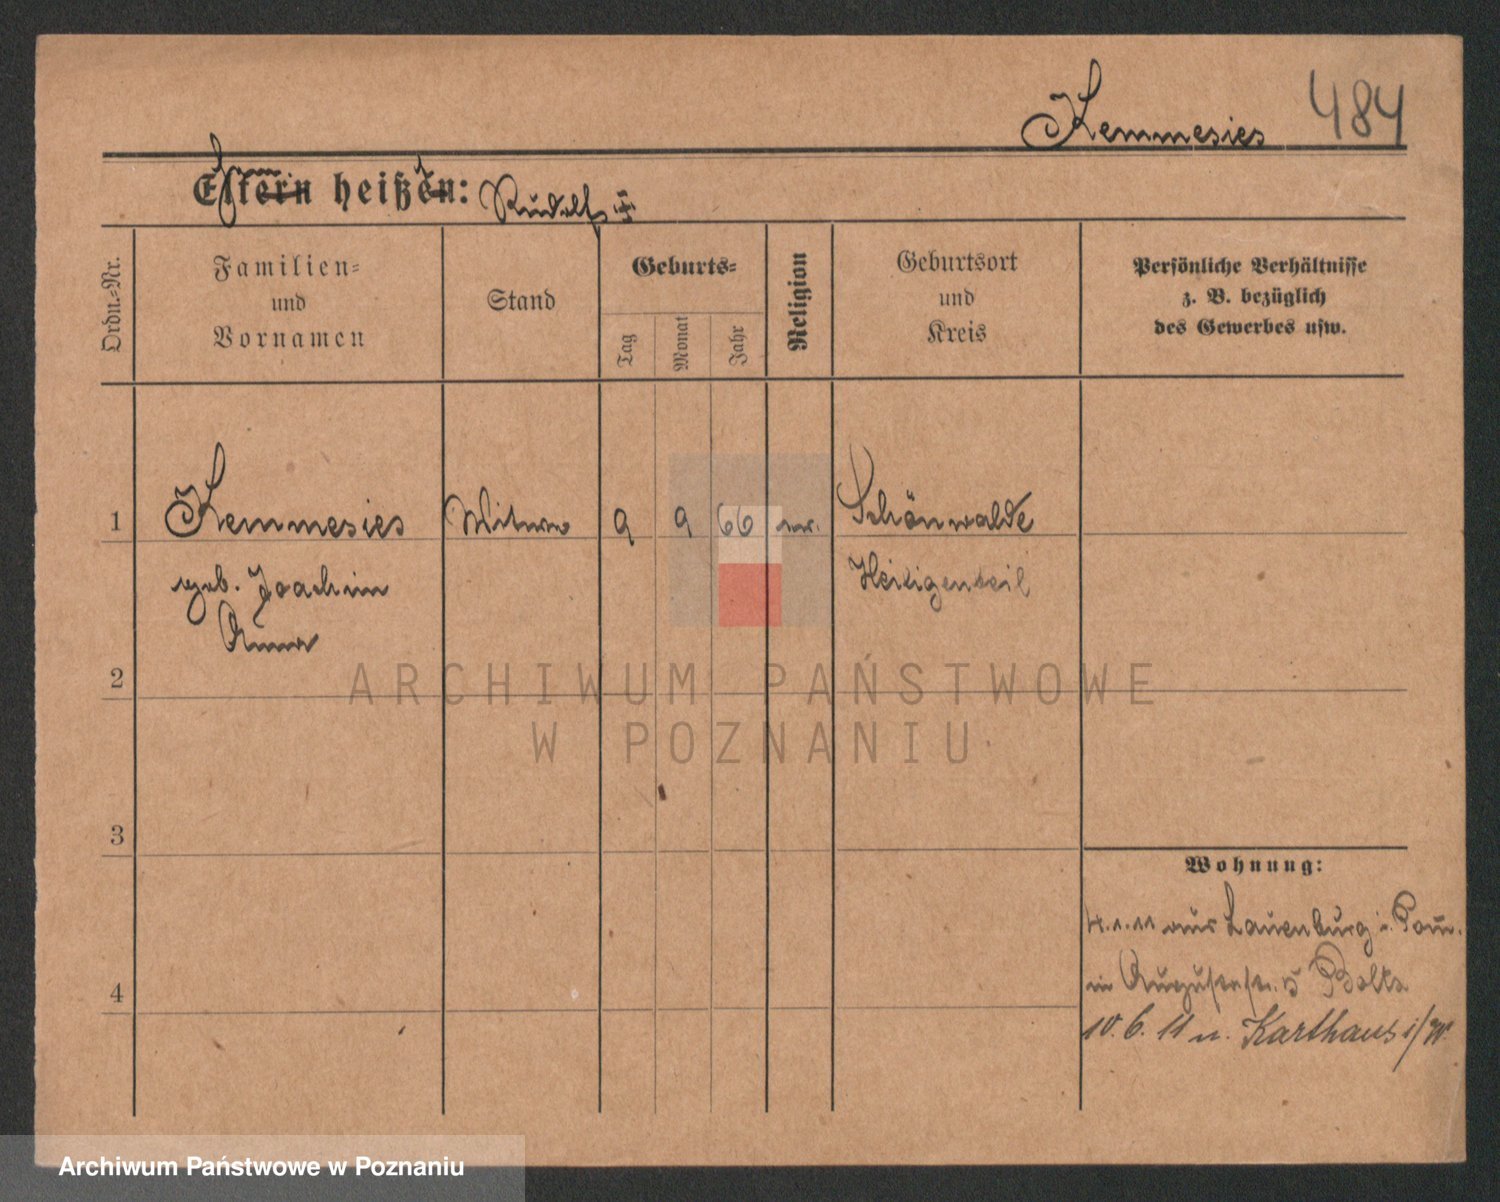 Kemmesies 484
Eltern heißen: Rudolf
Ordn.-Nr.
Familien-
und
Vornamen
Stand
Geburts-
Tag
Monat
Jahr
Religion
Geburtsort
und
Kreis
Persönliche Verhältnisse
z. B. bezüglich
des Gewerbes usw.
1 Kemmesies Witwe 9 9 66 ev. Schönwalde
geb. Joachim Heiligenbeil
Anna
2
3
4
Wohnung:
4.1.11 aus Lauenburg i. Pom.
in Augustastr. 5 Bolls
10.6.11 n. Karthaus i/W.
ARCHIWUM PAŃSTWOWE
W POZNANIU
Archiwum Państwowe w Poznaniu